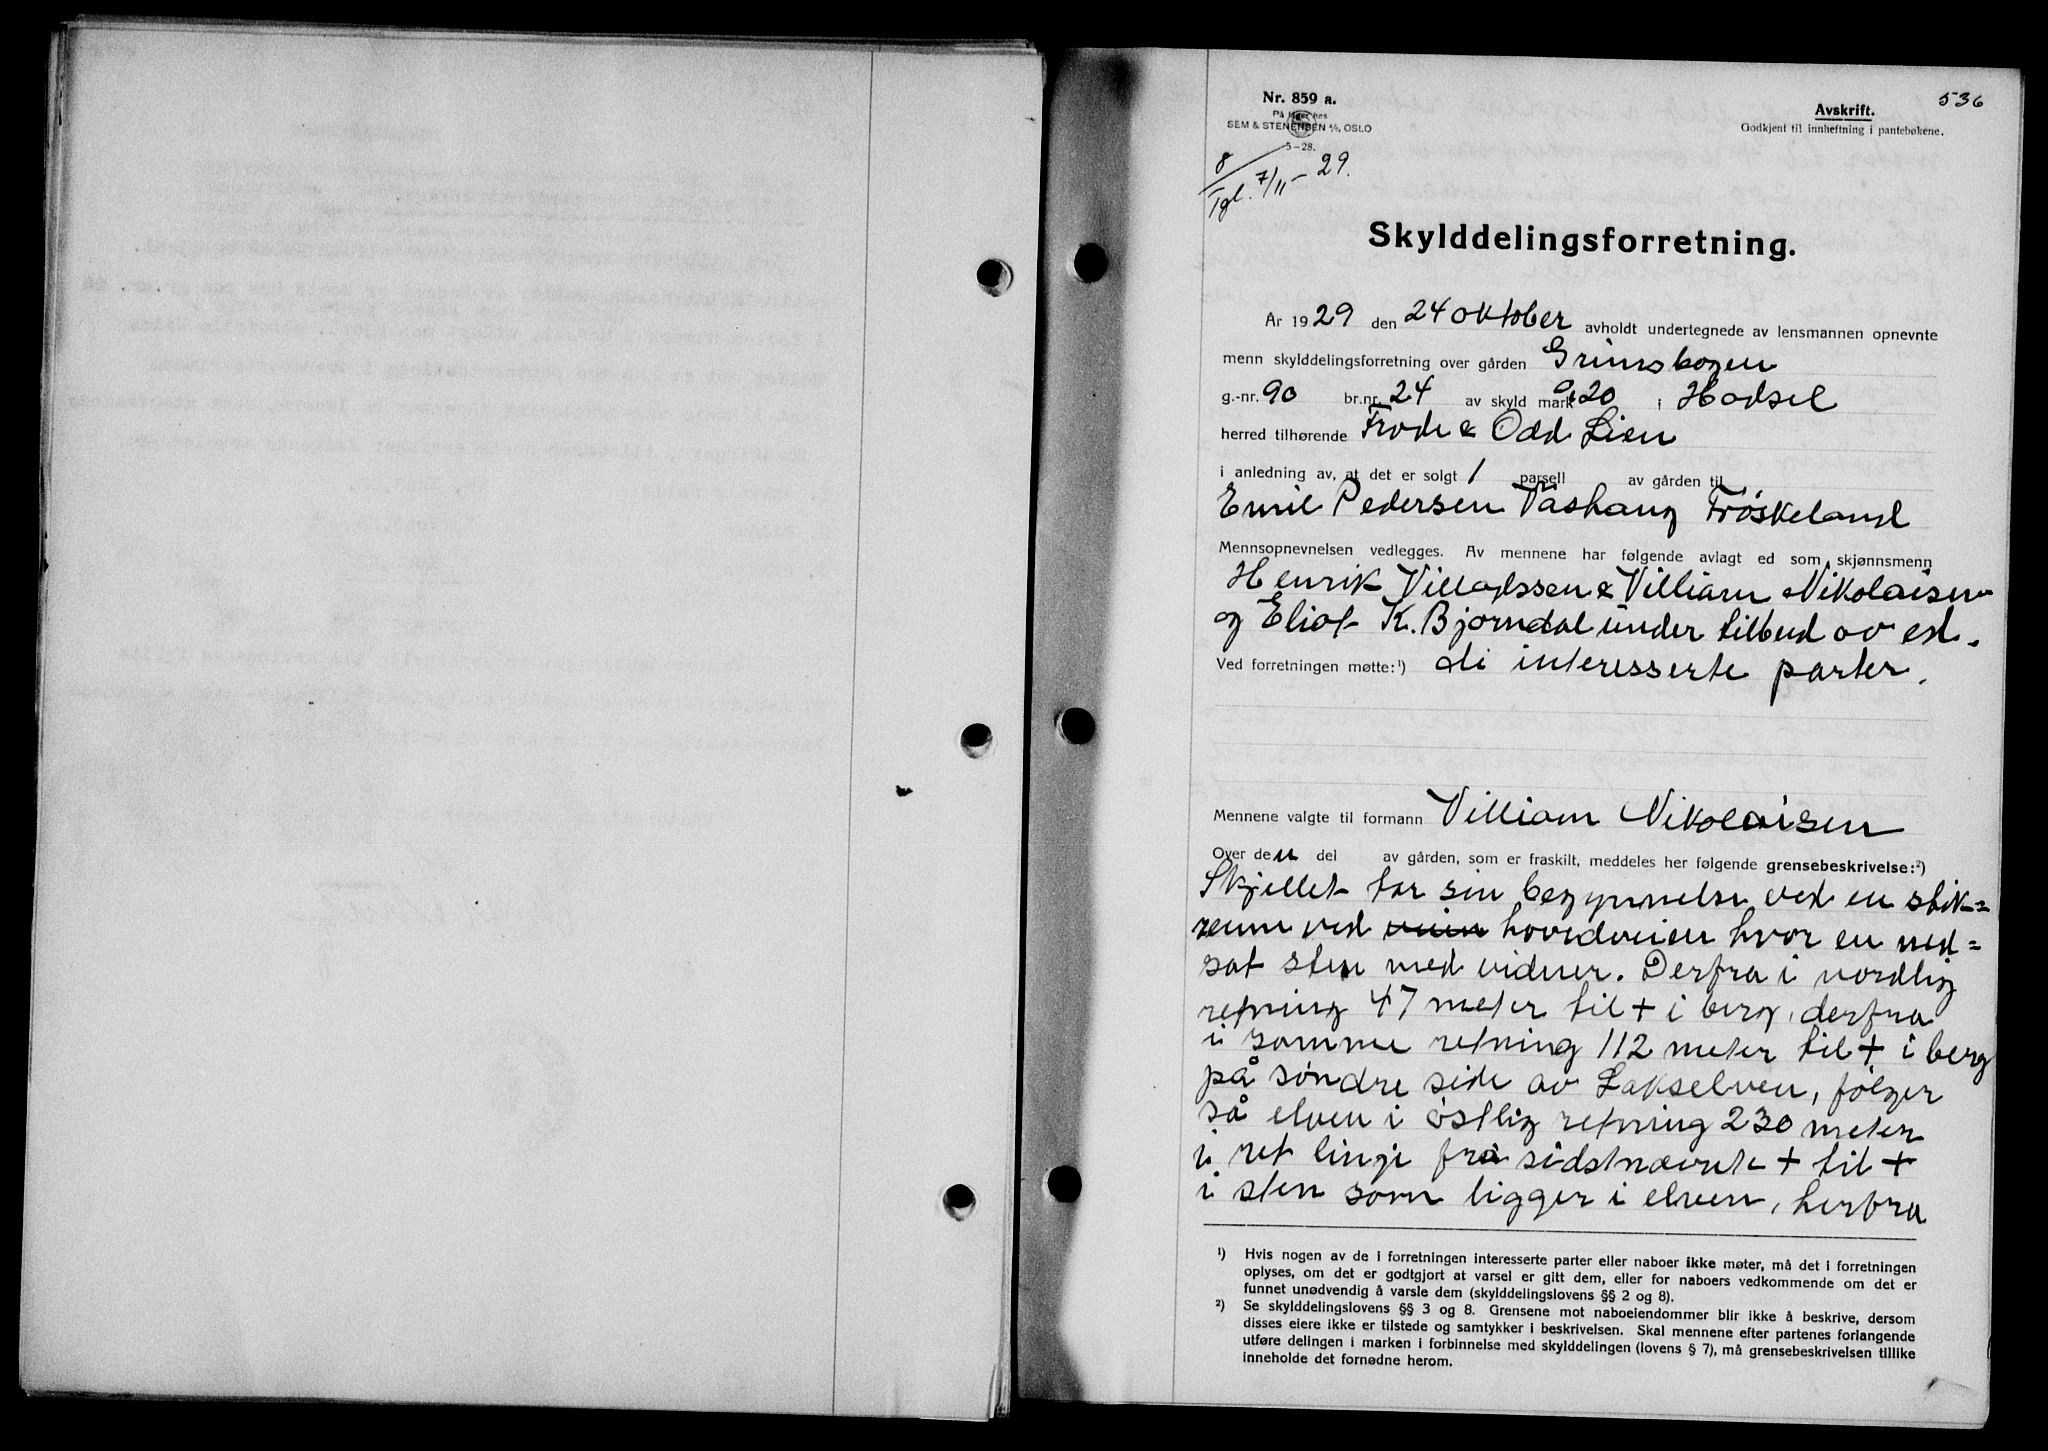 536
Nr. 859 a.
På lager hos
SEM & STENERSEN A/S, OSLO
5-28.
Avskrift.
Godkjent til innheftning i pantebøkene.
8/Tgl. 7/11 - 29.
Skylddelingsforretning.
År 1929 den 24 oktober avholdt undertegnede av lensmannen opnevnte
menn skylddelingsforretning over gården Grimsbogen
g.-nr. 90 br.nr. 24 av skyld mark 0,20 i Hadsel
herred tilhørende Frode & Odd Lien
i anledning av, at det er solgt 1 parsell av gården til
Emil Pedersen Våshaug Frøskeland
Mennsopnevnelsen vedlegges. Av mennene har følgende avlagt ed som skjønnsmenn
Henrik Villadssen & Villiam Nikolaisen
og Eliot K. Bjørndal under tilbud av ed.
Ved forretningen møtte:¹) di interesserte parter.
Mennene valgte til formann Villiam Nikolaisen
Over den del av gården, som er fraskilt, meddeles her følgende grensebeskrivelse:²)
Skjellet tar sin begynnelse ved en stik=
renne ved veien hovedveien hvor en ned=
sat sten med vidner. Derfra i nordlig
retning 47 meter til + i berg, derfra
i samme retning 112 meter til + i berg
på søndre side av Lakselven, følger
så elven i østlig retning 230 meter
i ret linje fra sidstnævnte + til +
i sten som ligger i elven, herfra
¹) Hvis nogen av de i forretningen interesserte parter eller naboer ikke møter, må det i forretningen
oplyses, om det er godtgjort at varsel er gitt dem, eller for naboers vedkommende om det er
funnet unødvendig å varsle dem (skylddelingslovens §§ 2 og 8).
²) Se skylddelingslovens §§ 3 og 8. Grensene mot naboeiendommer blir ikke å beskrive, dersom
disses eiere ikke er tilstede og samtykker i beskrivelsen. Skal mennene efter partenes forlangende
utføre delingen i marken i forbinnelse med skylddelingen (lovens § 7), må grensebeskrivelsen tillike
inneholde det fornødne herom.